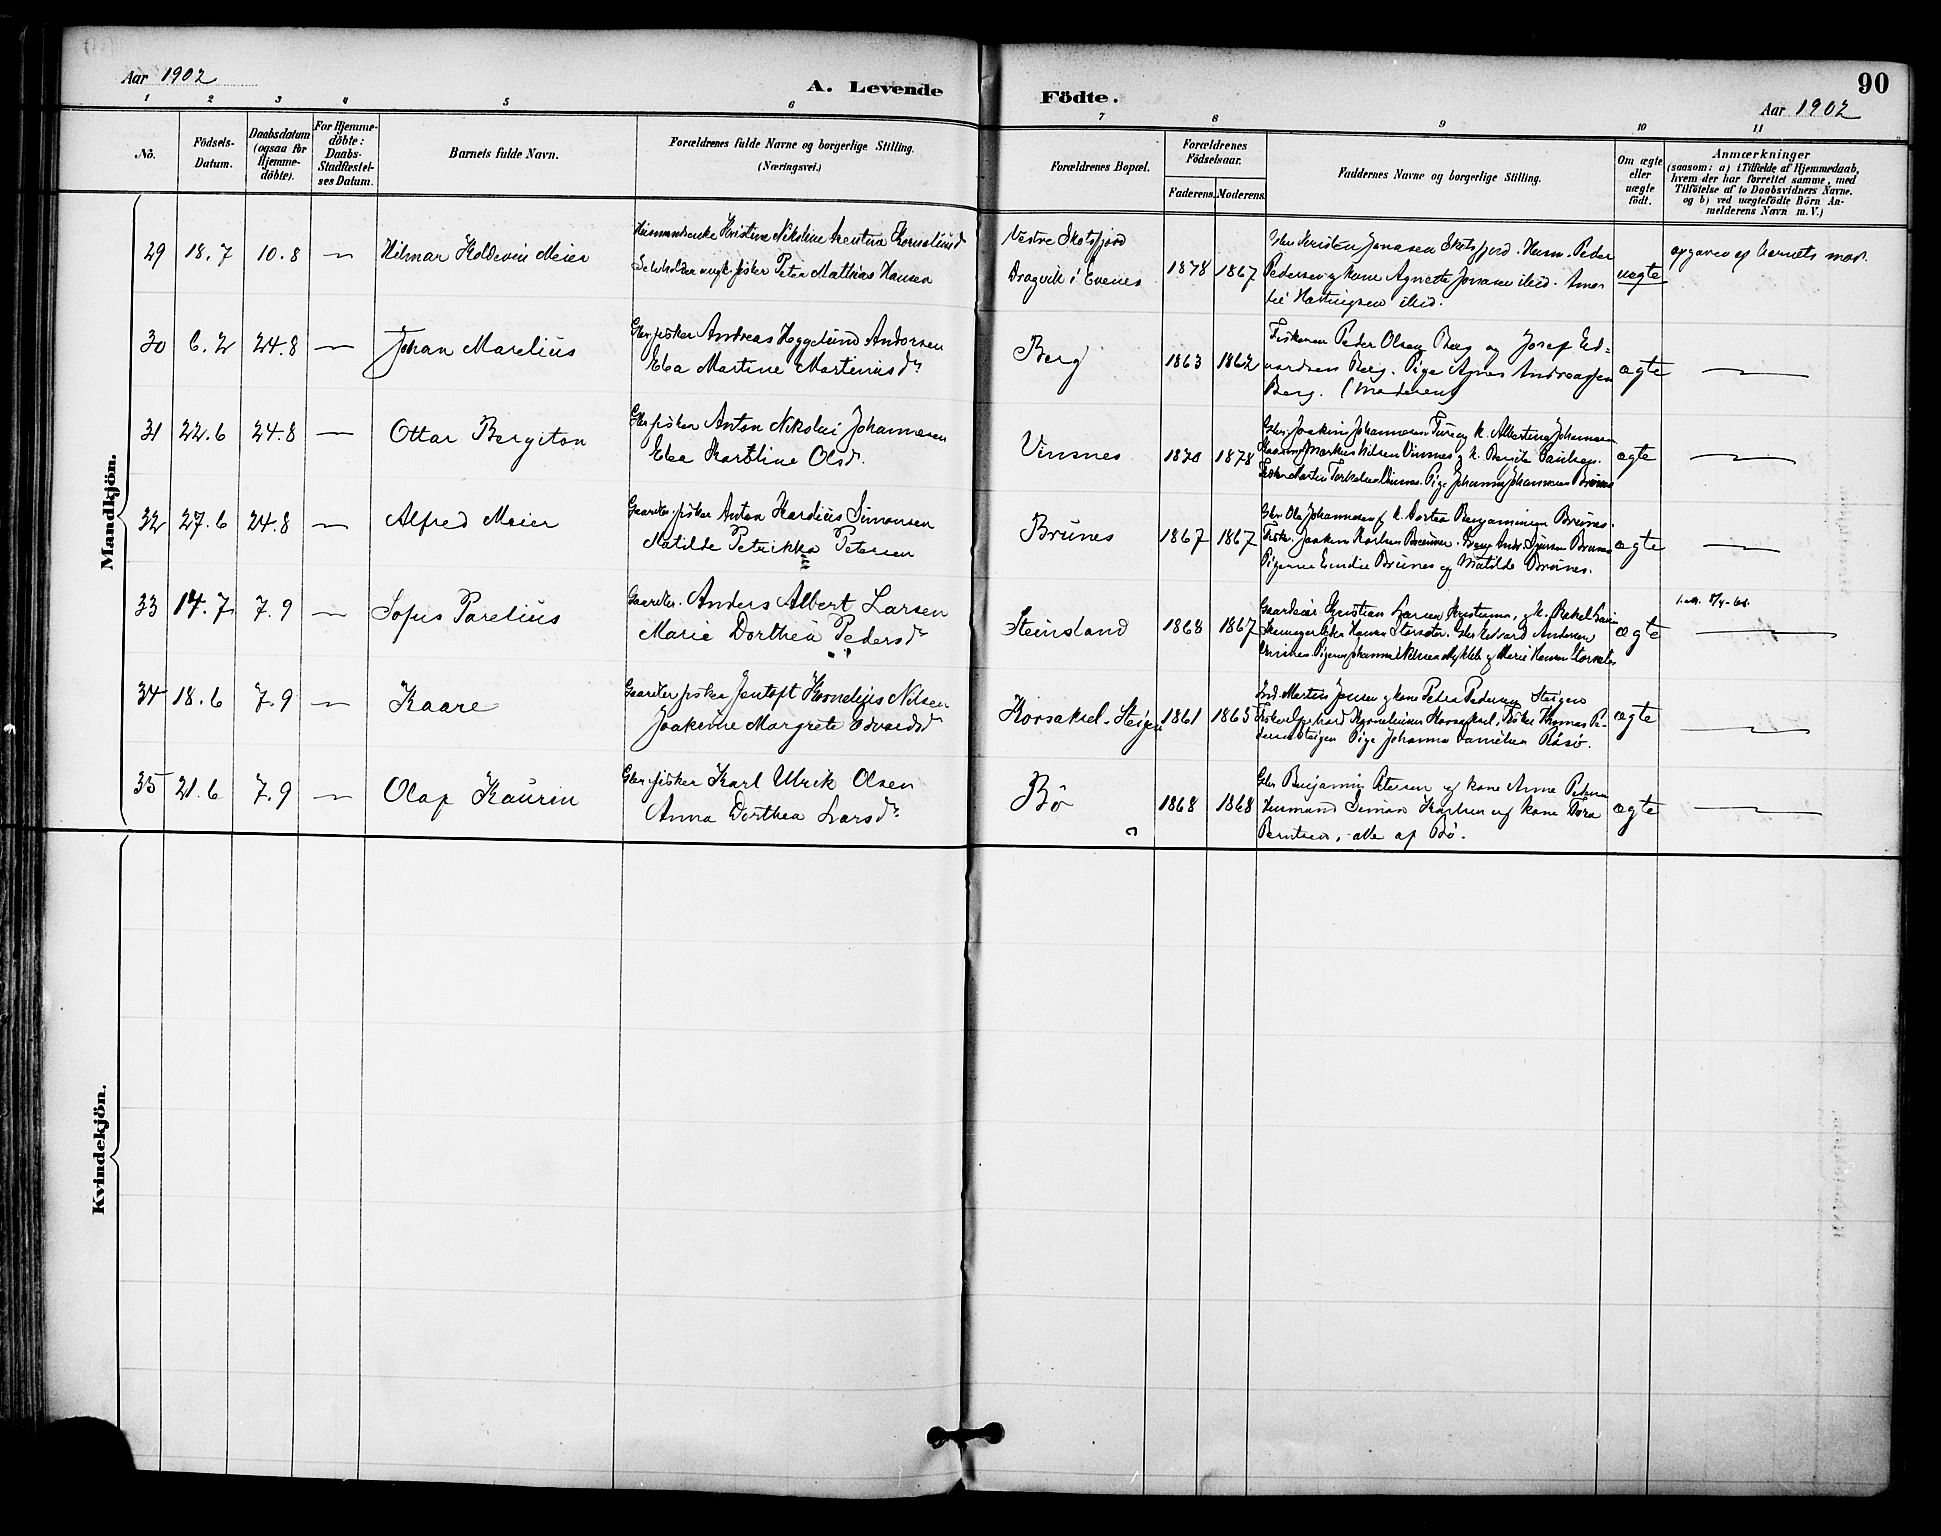 90
Aar 1902
A. Levende
Födte.
Aar 1902
1 2 3 4 5 6 7 8 9 10 11
Nö.
Födsels-
Datum.
Daabsdatum
(ogsaa for
Hjemme-
döbte).
For Hjemme-
döbte:
Daabs-
Stadfæstel-
ses Datum.
Barnets fulde Navn.
Forældrenes fulde Navne og borgerlige Stilling.
(Næringsvei.)
Forældrenes Bopæl.
Forældrenes
Födselsaar.
Faderens. Moderens.
Faddernes Navne og borgerlige Stilling.
Om ægte
eller
uægte
födt.
Anmærkninger
(saasom: a) i Tilfælde af Hjemmedaab,
hvem der har forrettet samme, med
Tilföielse af to Daabsvidners Navne.
og b) ved uægtefödte Börn An-
melderens Navn m. V.)
Mandkjön.
29 18.7 10.8 — Hilmar Koldevin Meier
Kristine Nikoline
Selvholder ungk. fisker Peter Mathias Hansen
Vestre Skotsfjord
Dragvik i Evenes
1878 1867
Jonasen Skotsfjord. Husm. Peder
Pedersen og kone Agnette Jonasen ibid.
Hartvigsen ibid.
uægte
opgaven af barnets mor.
30 6.2 24.8 — Johan Marelius
Gbr. fisker Andreas Heggelund Andorsen
Eva Martine Martinusdr
Berg
1863 1862
Fiskerne Peder Olsen Berg og Josef Ed-
vardsen Berg. Pige Agnes Andreassen
Berg. (Moderen)
ægte —
31 22.6 24.8 — Ottar Bergiton
Gbr. fisker Anton Nikolai Johannesen
Eva Karoline Olsdr.
Vinsnes
1870 1878
Gbr. Joakim Johannesen og k. Albertine Johansen
Markus Nilsen Vinsnes og k. Bergite Paulsen.
Pige Johanna Johannesen Brunes
ægte —
32 27.6 24.8 — Alfred Meier
Gaardbr. fisker Anton Kardius Simonsen
Matilde Petrikka Petersen
Brunes
1867 1867
Gbr. Ole Johannesen og k. Benjaminsen Brunes.
Fisk. Joakim Karlsen Brunes
Pigerne Emilie Brunes og Matilde Brunes.
ægte —
33 14.7 7.9 — Sofus Parelius
Gaardbr. Anders Albert Larsen
Marie Dorthea Pedersdr
Steinsland
1868 1867
Kristian Larsen
Hansen Gbr. Edvard Andersen
Marie Hansen
ægte —
34 18.6 7.9 — Kaare
Gaardbr fisker Jentoft Kornelius Nilsen
Joakime Margrete Edvardsdr
Korsaksel. Steigen
1861 1863
Ind. Martin Jensen og kone Petra Pedersen Steigen
Fisker Korneliusen Korsaksel, Fisker Thomas Pe-
dersen Steigen Pige Johanna Danielsen Räsö.
ægte —
35 21.6 7.9 — Olaf Kaurin
Gbr. fisker Karl Ulrik Olsen
Anna Dorthea Larsdr
Bö
1868 1868
Gbr Benjamin Petersen og kone Anne Petersen
Husmand Simon Karlsen og kone Dora
Berntsen, alle af Bö.
ægte —
Kvindekjön.